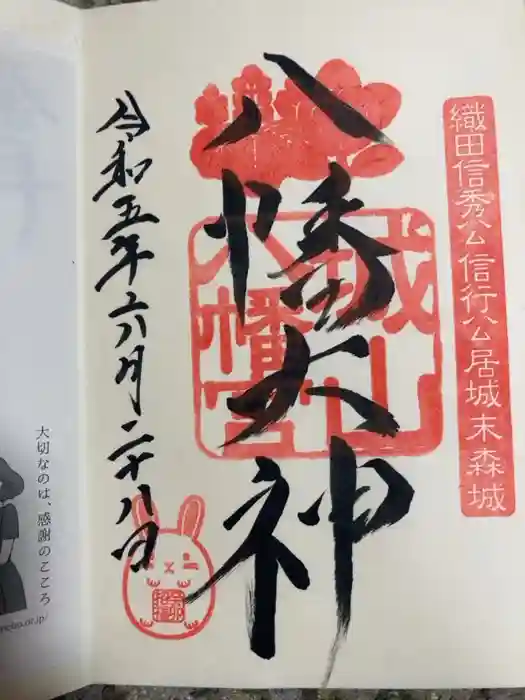 織田信秀公信行公居城末森城
八幡大神
城山
八幡宮
令和五年六月二十八日
大切なのは、感謝のこころ